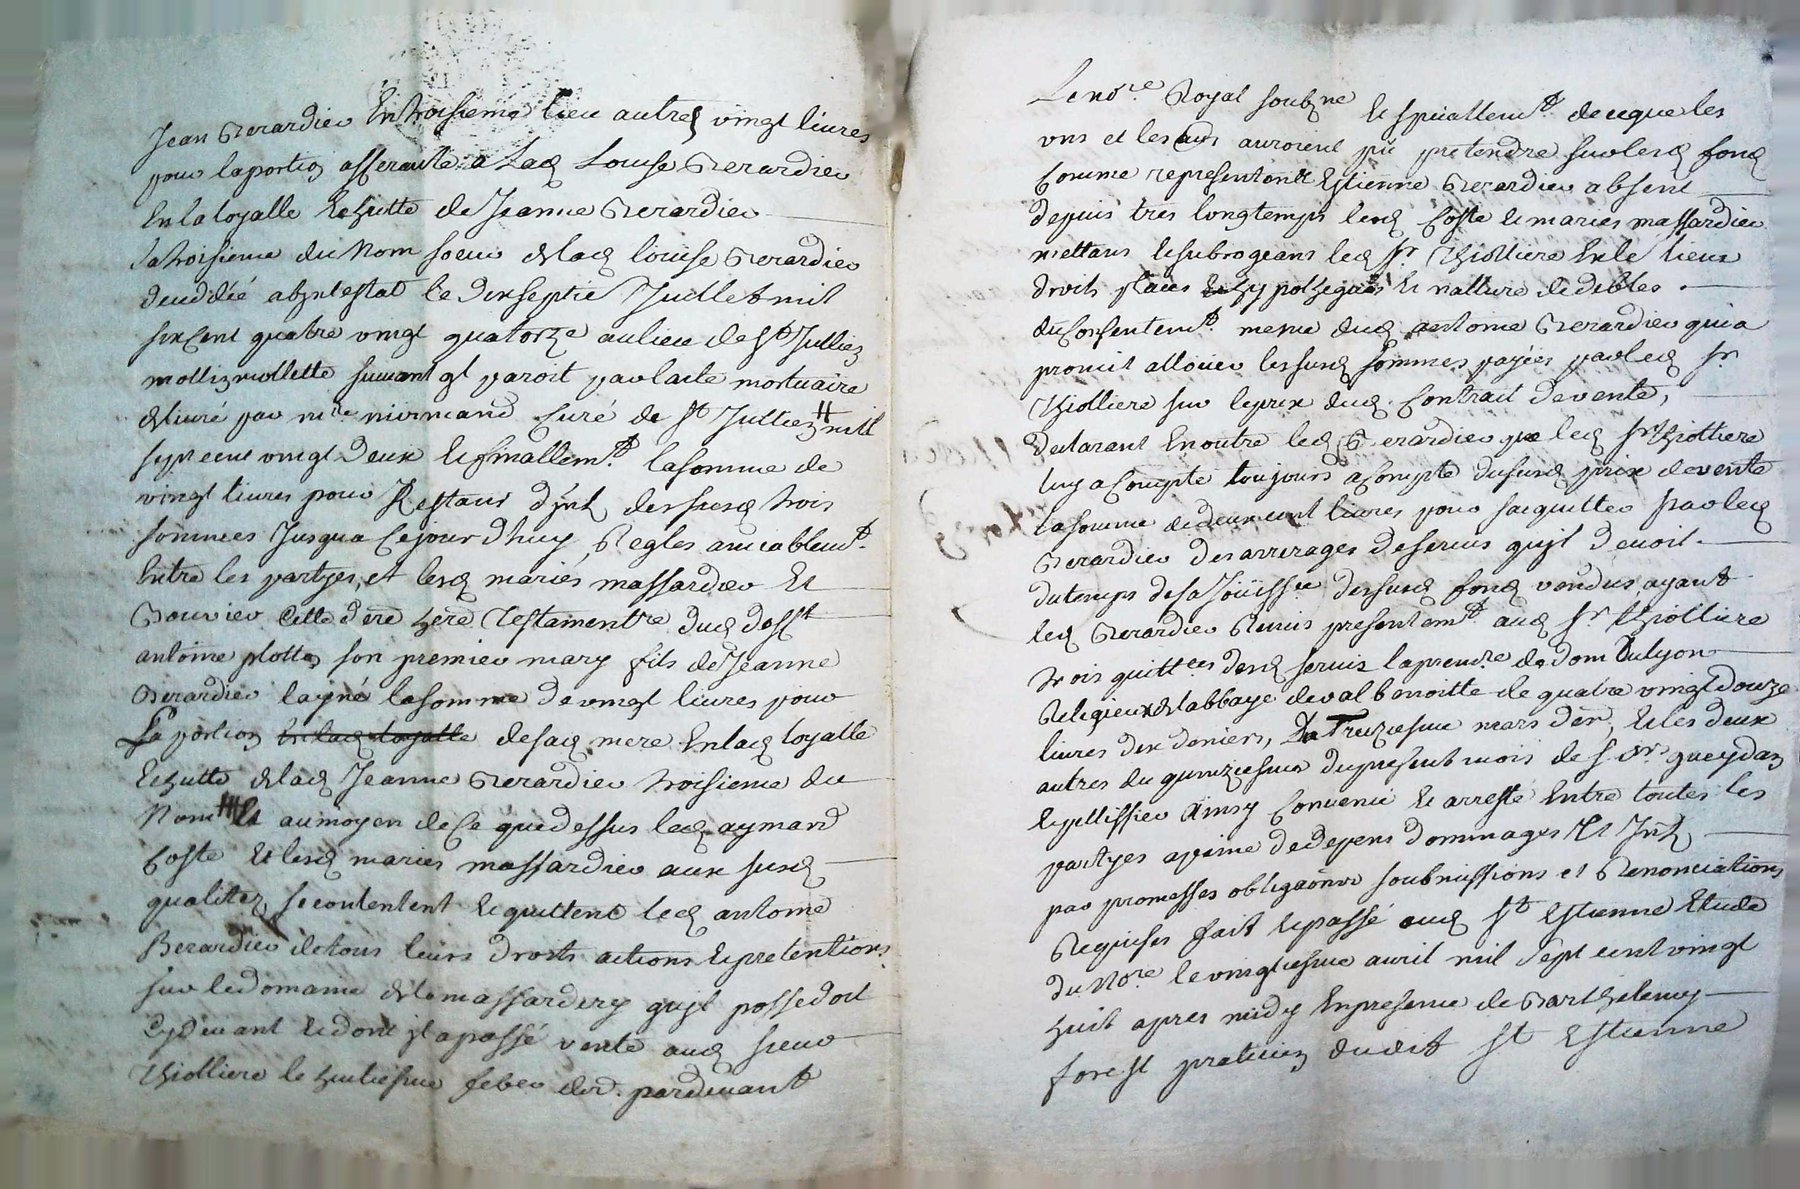 Jean Berardier En troisieme lieu autres vingt livres
pour la portion afferante a lad Louise Berardier
En la loyalle Echutte de Jeanne Berardier
la troisieme du Nom soeur de lad louise Berardier
decedée abintestat le dixseptie Juillet mil
six Cent quatre vingt quatorze au lieu de St Jullien
mollinmollette suivant qt paroit par lacte mortuaire
delivré par mre Curé de St Jullien # mil
sept cent vingt Deux Et finallemt la somme de
vingt livres pour Restant dynt des susd trois
sommes Jusqua Ce jour dhuy Regles amiablemt
Entre les partyes, et lesd mariés massardier Et
Bouvier Cette dere here Testamentre dud defft
antoine plotton son premier mary fils de Jeanne
Berardier layné la somme de vingt livres pour
La portion En lad loyalle de sad mere En lad loyalle
Echutte de lad Jeanne Berardier troisieme du
Nom # Et au moyen de Ce que dessus led aymard
Coste Et lesd maries massardier aux susd
qualitez se contentent Et quittent led antoine
Berardier de tous leurs droits actions Et pretentions
sur le domaine de la massardiery quil possedoit
Cydevant Et dont jl a passé vente aud sieur
Thiolliere le huitiesme feber der pardevant
Le nore Royal soubzne Et speciallemt de ce que les
uns et les autres auroient pû pretendre sur lesd fond
Comme representants Estienne Berardier absent
depuis tres longtemps lesd Coste Et maries massardier
mettans Et subrogeans led sr Thiolliere En le lieux
droits places Et hypotheques Et nature de debtes
du Consentemt meme dud antoine Berardier qui a
promit allouer les susd sommes payées par led sr
Thiolliere sur le prix dud Contrait de vente,
declarant En outre led Berardier que led sr Thiolliere
luy a Compté toujours a Compte du susd prix de vente
la somme de deux cent livres pour sacquitter par led
Berardier des arrerages de servis quil devoit
du temps de sa Joüissce des susd fond vendus ayant
led Berardier Remis presentemt aud sr Thiolliere
trois quittces desd servis la premre de dom Dulyon
Religieux de labbaye de valbenoitte de quatre vingt douze
livres dix deniers, Du Treiziesme mars der, Et les deux
autres du quinziesme du present mois de srs gueydan
Et pellissier Ainsy Convenu Et arresté Entre toutes les
partyes a peine de depens dommages Et Jnts
par promesses obligaons soubmissions et Renonciations
Requises fait Et passé aud St Estienne Etude
du Nore le vingtiesme avril mil sept cent vingt
huit apres midy En presence de Barthelemy
forest praticien dudit St Estienne